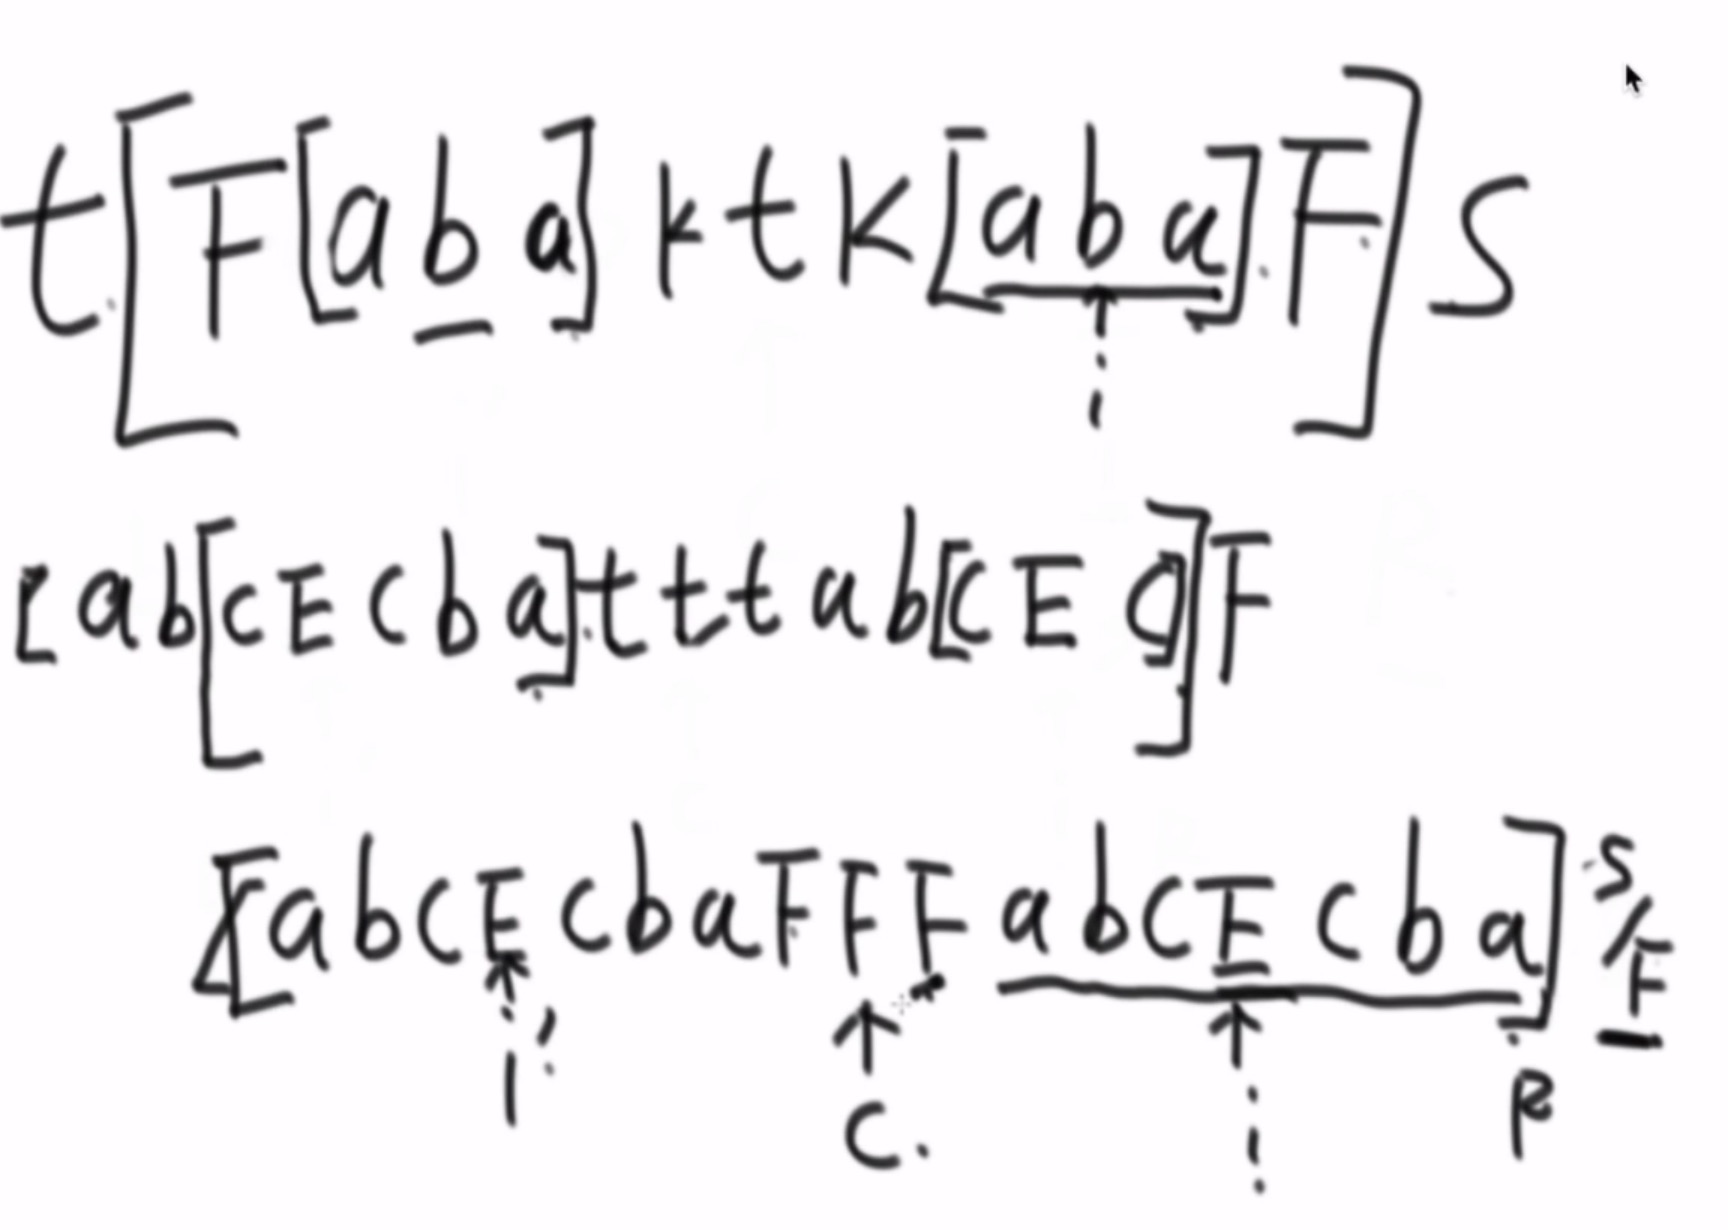 t[F[aba]ktk[aba]F]s
i
[ab[cEcba]tttab[cEc]]F
[abcEcbaFFFabcEcba]s/F
i'
C.
i
R